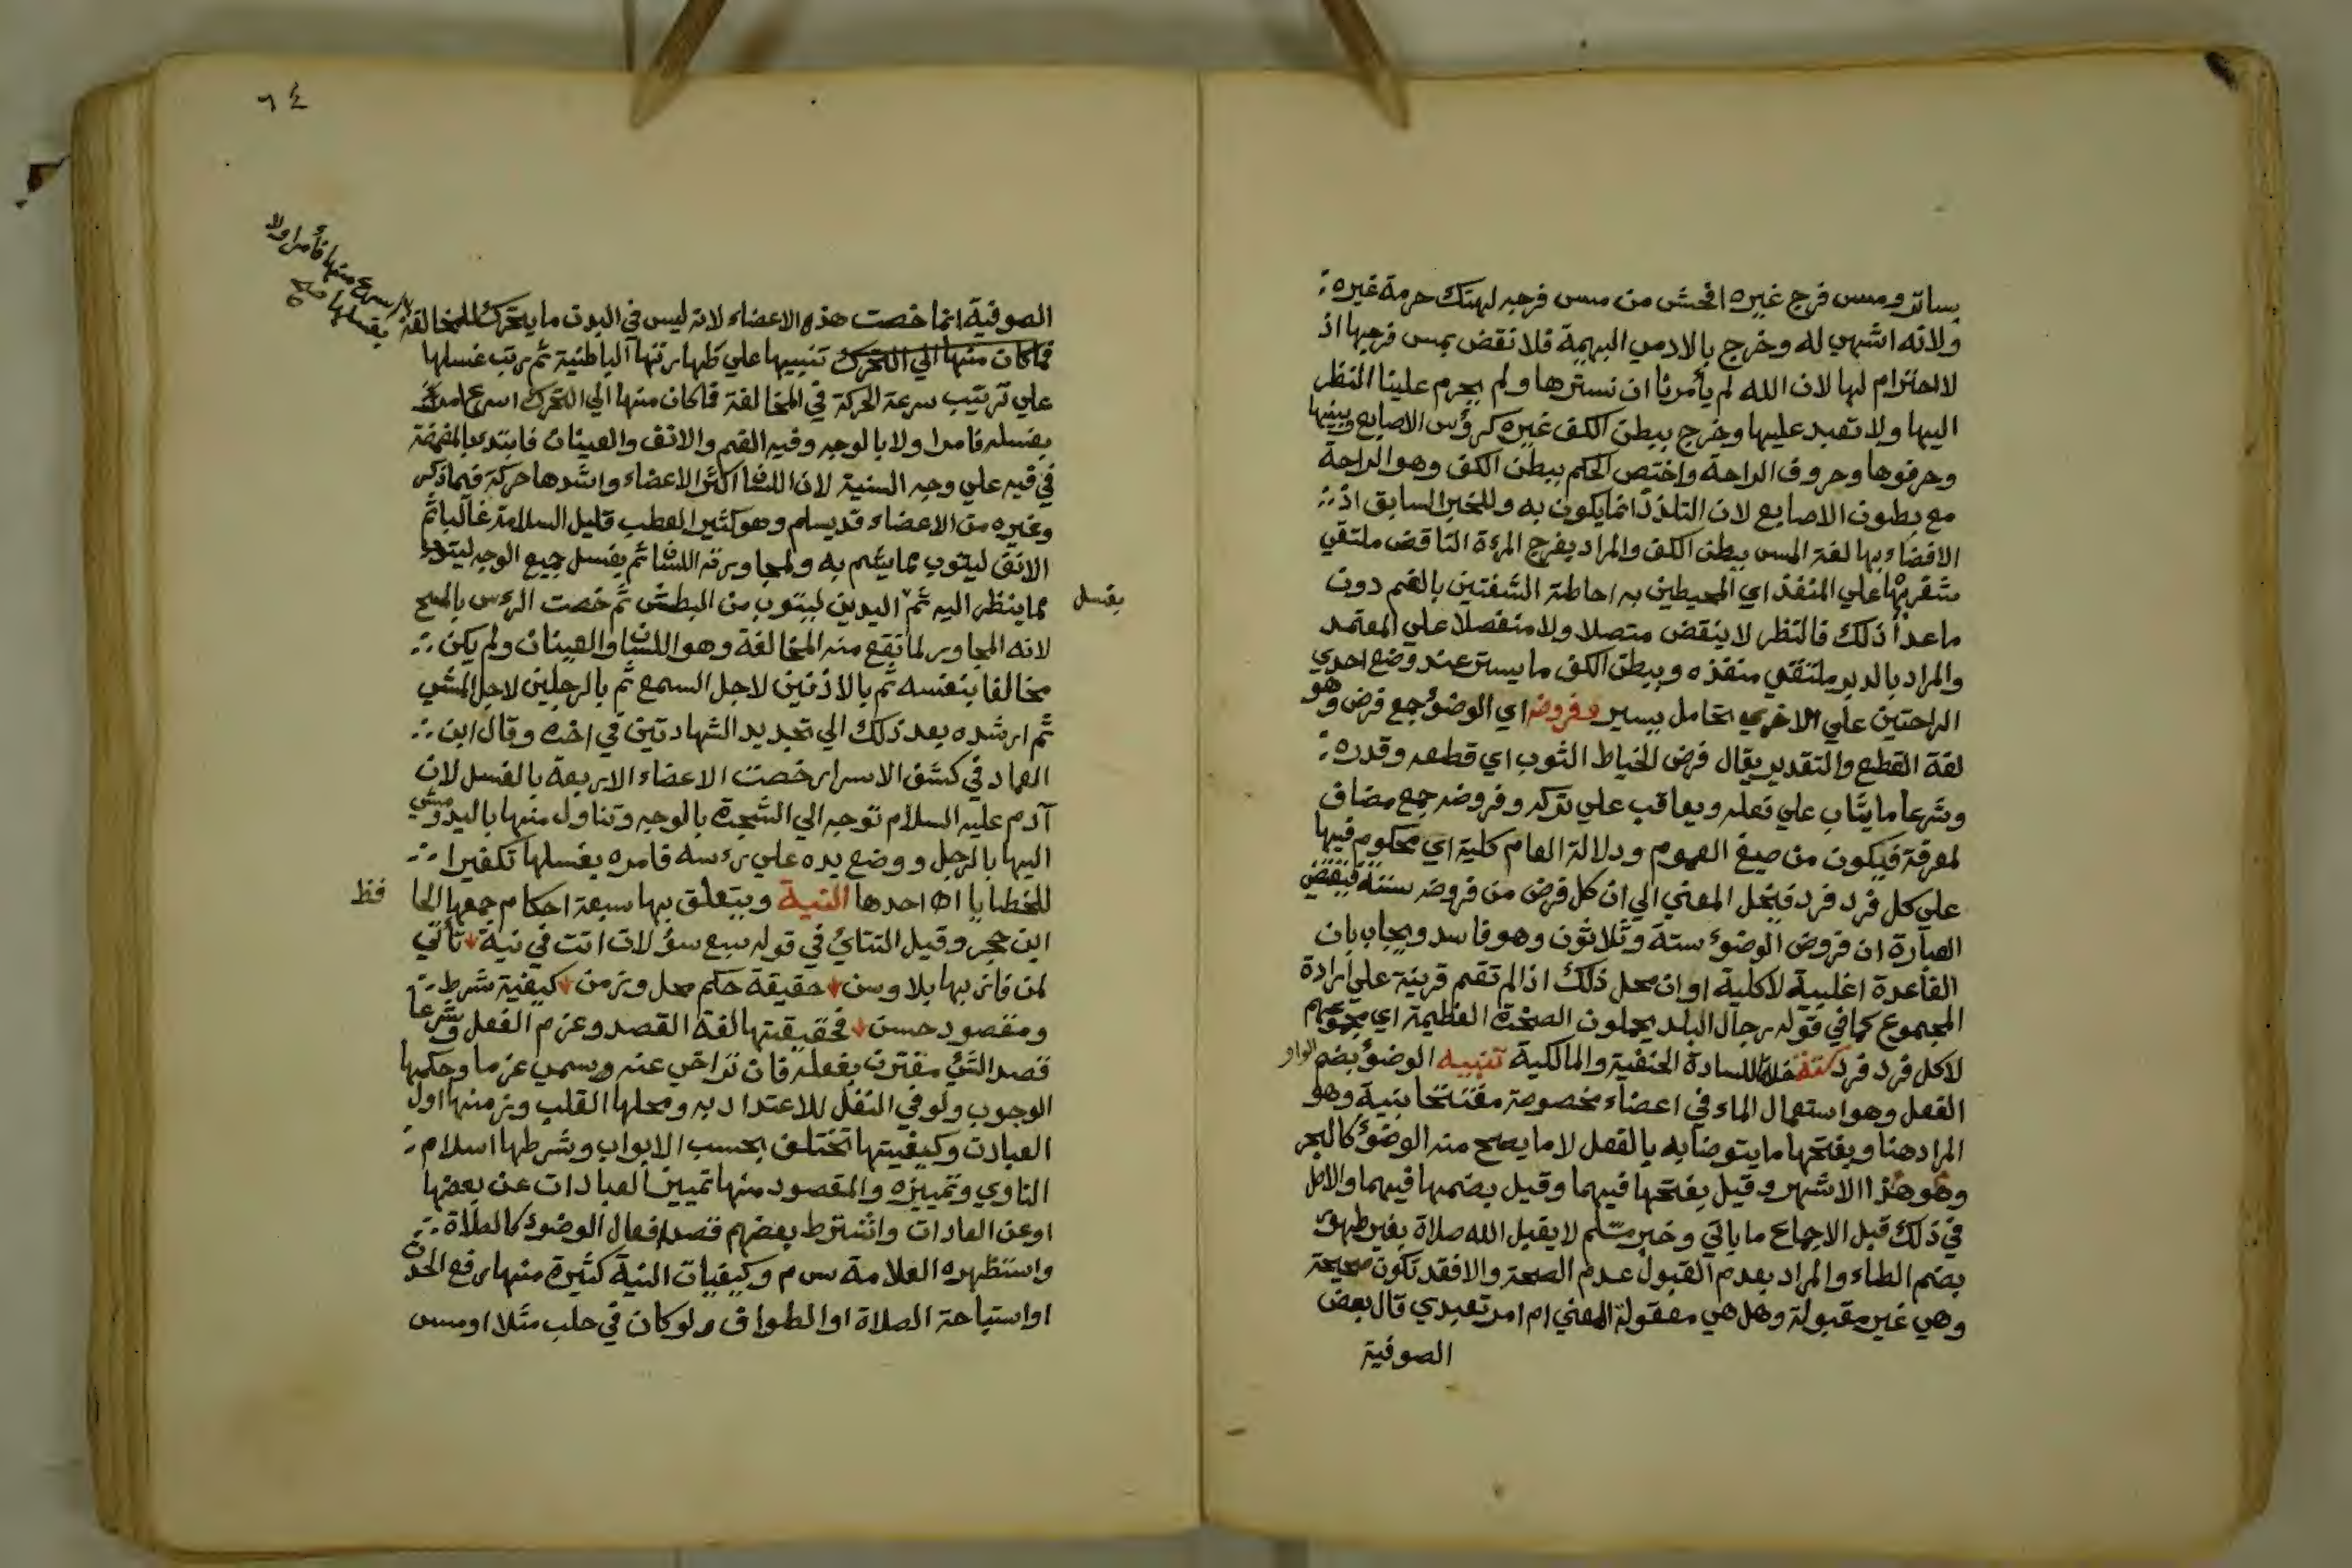 بساتر ومس فرج غيره افحش من مس فرجه لهتك حرمة غيره
ولانه اشهى له وخرج بالادمي البهيمة فلا نقض بمس فرجها اذ
لا احترام لها لان الله لم يأمرنا ان نسترها ولم يحرم علينا النظر
اليها ولا تعبد عليها وخرج ببطن الكف غيره كرؤس الاصابع وبينها
وحرفوها وحروف الراحة واختص الحكم ببطن الكف وهو الراحة
مع بطون الاصابع لان التلذذ انما يكون به وللخبر السابق اذ
الافضاء بها لغة المس ببطن الكف والمراد بفرج المرءة الناقض ملتقي
شفريها علي المنفذ اي المحيطين به احاطة الشفتين بالفم دون
ماعدا ذلك فالنظر لا ينقض متصلا ولا منفصلا علي المعتمد
والمراد بالدبر ملتقي منفذه وببطن الكف ما يستتر عند وضع احدي
الراحتين علي الاخري بتحامل يسير وفروضه اي الوضوء جمع فرض وهو
لغة القطع والتقدير يقال فرض الخياط الثوب اي قطعه وقدره
وشرعا ما يثاب علي فعله ويعاقب علي تركه وفروضه جمع مضاف
لمعرفة فيكون من صيغ العموم ودلالة العام كلية اي محكوم فيها
علي كل فرد فرد فينحل المعني الي ان كل فرض من فروضه ستة فيقتضي
العبارة ان فروض الوضوء ستة وثلاثون وهو فاسد ويجاب بان
القاعدة اغلبية لا كلية او ان محل ذلك اذا لم تقم قرينة علي ارادة
المجموع كما في قوله رجال البلد يحملون الصخرة العظيمة اي مجموعهم
لا كل فرد فرد ستة خلافا للسادة الحنفية والمالكية تنبيه الوضوء بضم الواو
الفعل وهو استعمال الماء في اعضاء مخصوصة مفتتحا بنية وهو
المراد هنا وبفتحها ما يتوضأ به بالفعل لا ما يصح منه الوضوء كالبحر
وهو هذا الاشهر وقيل بفتحها فيهما وقيل بضمها فيهما والاصل
في ذلك قبل الاجماع ما ياتي وخبر مسلم لا يقبل الله صلاة بغير طهور
بضم الطاء والمراد بعدم القبول عدم الصحة والا فقد تكون صحيحة
وهي غير مقبولة وهل هي معقولة المعني ام امر تعبدي قال بعض
الصوفية
٦٤
الصوفية انما خصت هذه الاعضاء لانه ليس في البدن ما يتحرك للمخالفة
اسرع منها فأمر اولا
بغسلها صح
فما كان منها الي التحرك تنبيها علي طهارتها الباطنية ثم رتب غسلها
علي ترتيب سرعة الحركة في المخالفة فما كان منها الي التحرك اسرع امر
بغسله فامر اولا بالوجه وفيه الفم والانف والعينان فابتدئ بالمضمضة
في فيه علي وجه السنية لان اللسان اكثر الاعضاء واشدها حركة فيما ذكر
وغيره من الاعضاء قد يسلم وهو كثير العطب قليل السلامة غالبا ثم
الانف ليتوب مما يشم به ولمجاورته اللسان ثم يغسل جميع الوجه ليتوب
مما ينظر اليه ثم اليدين ليتوب من البطش ثم خصت الرءس بالمسح
يغسل
لانه المجاور لما تقع منه المخالفة وهو اللسان والعينان ولم يكن
مخالفا بنفسه ثم بالاذنين لاجل السمع ثم بالرجلين لاجل المشي
ثم ارشده بعد ذلك الي تجديد الشهادتين في اخره وقال ابن
العماد في كشف الاسرار خصت الاعضاء الاربعة بالغسل لان
آدم عليه السلام توجه الي الشجرة بالوجه وتناول منها باليد ومشي
اليها بالرجل ووضع يده علي رءسه فامره بغسلها تكفيرا
للخطايا اه احدها النية ويتعلق بها سبعة احكام جمعها الحا
فظ
ابن حجر وقيل التتائي في قوله سبع سؤلات اتت في نية تأتي
لمن قارنها بلا وسن حقيقة حكم محل وزمن كيفية شرط
ومقصود حسن فحقيقتها لغة القصد وعزم الفعل وشرعا
قصد الشئ مقترن بفعله فان تراخي عنه سمي عزما وحكمها
الوجوب ولو في النفل للاعتداد به ومحلها القلب وزمنها اول
العبادت وكيفيتها تختلف بحسب الابواب وشرطها اسلام
الناوي وتمييزه والمقصود منها تمييز العبادات عن بعضها
او عن العادات واشترط بعضهم قصد افعال الوضوء كالصلاة
واستظهره العلامة س م وكيفيات النية كثيرة منها رفع الحدث
او استباحة الصلاة او الطواف ولو كان في حلب مثلا او مس